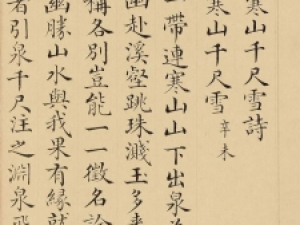 寒山千尺雪詩
寒山千尺雪辛未
一帶連寒山山下出泉
幽赴溪壑跳珠濺玉多
稱各別豈能一一徵名論
幽勝山水與我果有緣就
者引泉千尺注之淵泉飛